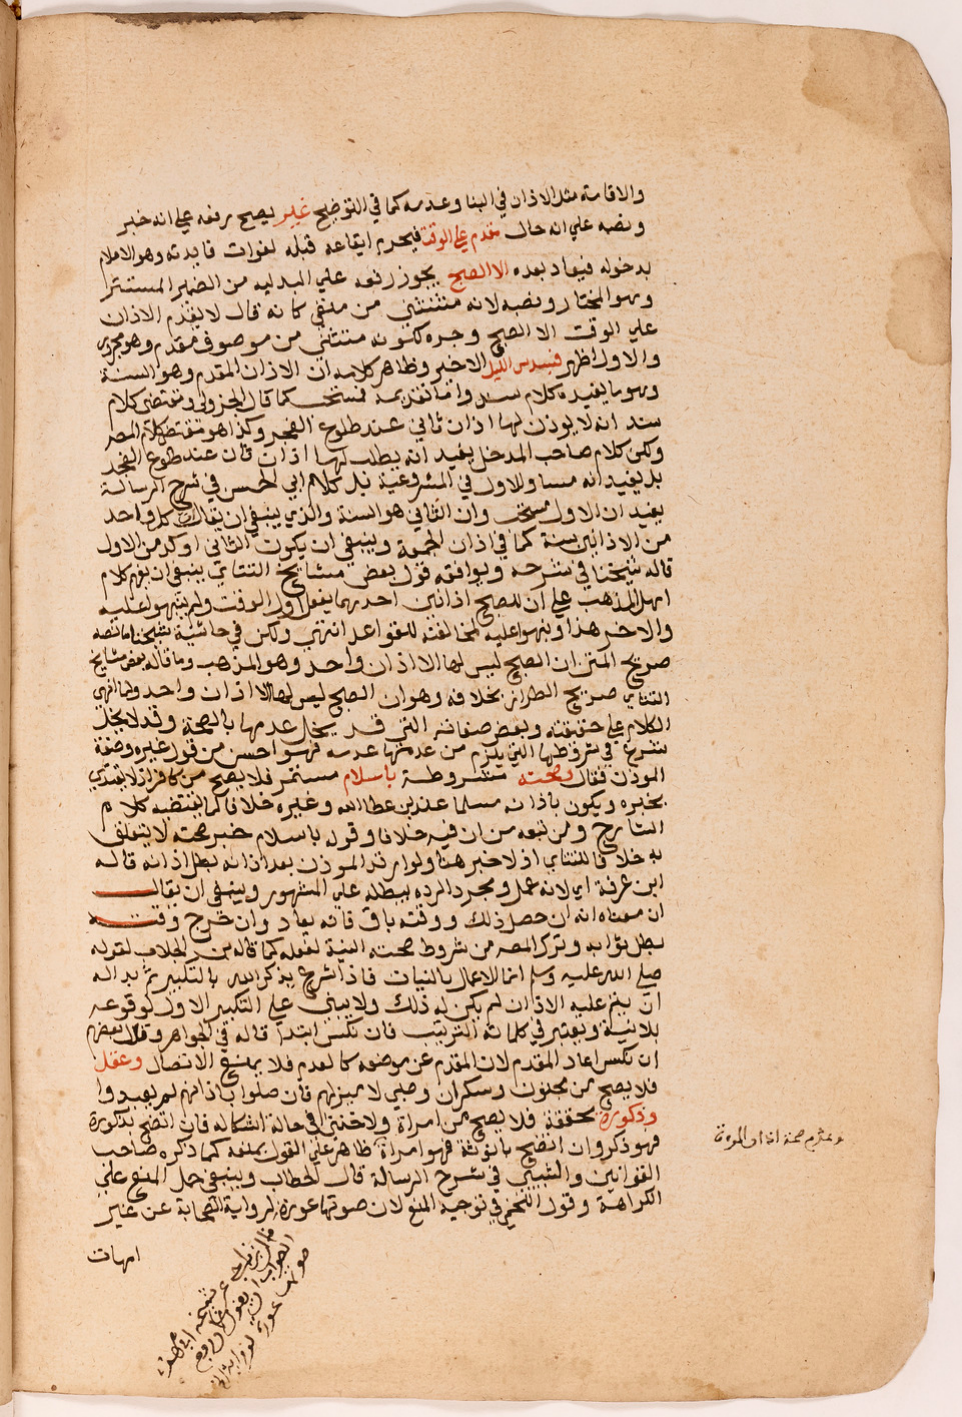 والاقامة مثل الاذان في البنا وعدمه كما في التوضيح غير يصح رفعه علي انه خبر
ونصبه علي انه حال مقدم علي الوقت فيحرم ايقاعه قبله لفوات فايدته وهو الاعلام
بدخوله فيعاد بعده الا الصبح يجوز رفعه علي البدلية من الضمير المستتر
وهو المختار ونصبه لانه مستثني من منفي كانه قال لا يقدم الاذان
علي الوقت الا الصبح وجره ككونه مستثني من موصوف مقدم وهو مجرور
والاول اظهر فبسدس الليل الاخير وظاهر كلامه ان الاذان المقدم وهو السنة
وهو ما يفيده كلام سند واما تقديمه فمستحب كما قال الجزولي ومقتضي كلام
سند انه لا يوذن لها اذان ثاني عند طلوع الفجر وكذا هو مقتضي كلام المص
ولكن كلام صاحب المدخل يفيد انه يطلب لها اذان ثان عند طلوع الفجر
بل يفيد انه مساو للاول في المشروعية بل كلام ابي الحسن في شرح الرسالة
يفيد ان الاول مستحب وان الثاني هو السنة والذي ينبغي ان يقال ان كل واحد
من الاذانين سنة كما في اذان الجمعة وينبغي ان يكون الثاني اوكد من الاول
قاله شيخنا في شرحه ويوافقه قول بعض مشايخ التتاي ينبغي ان يفهم كلام
اهل المذهب علي ان للصبح اذانين احدهما يفعل اول الوقت ولم ينبهوا عليه
والاخر هذا ونبهوا عليه لمخالفته للقواعد انتهي ولكن في حاشية شيخنا ما نصه
صريح المتن ان الصبح ليس لها الا اذان واحد وهو المذهب وما قاله بعض مشايخ
التتاي صريح الطراز بخلافه وهو ان الصبح ليس لها الا اذان واحد ولما انهي
الكلام علي حقيقته وبعض صفاته التي قد يخل عدمها بالصحة وقد لا يخل
شرع في شروطها التي يلزم من عدمها عدمه فهو احسن من قول غيره وصفة
الموذن فقال وصحته مشروطة باسلام مستمر فلا يصح من كافر اذ لا يقتدي
بخبره ويكون باذانه مسلما عند بن عطا الله وغيره خلافا لما يقتضيه كلام
الشارح ومن تبعه من ان فيه خلافا وقوله باسلام خبر صحته لا يتعلق
به خلافا للتتاي اذ لا خبر هنا ولو ارتد الموذن بعد اذانه بطل اذانه قاله
ابن عرفة اي لانه عمل ومجرد الرده يبطله علي المشهور وينبغي ان يقال
ان معناه انه ان حصل ذلك ووقته باق فانه يعاد وان خرج وقته
بطل ثوابه وترك المص من شروط صحته النية لفعله كما قاله بن الجلاب لقوله
صلي الله عليه وسلم انما الاعمال بالنيات فاذا شرع يذكر الله بالتكبير ثم بدا له
ان يتم عليه الاذان لم يكن له ذلك ولا يبني علي التكبير الاول لوقوعه
بلا نية ويعتبر في كلماته الترتيب فان نكس ابتدا قاله في الجواهر وقال بعضهم
ان نكس اعاد المقدم لان المقدم عن موضعه كالعدم فلا يمنع الاتصال وعقل
فلا يصح من مجنون وسكران وصبي لا ميز لهم فان صلوا باذانهم لم يعيدوا
وذكورة محققة فلا يصح من امراة ولا خنثي في حالة اشكاله فان اتضح بذكورة
فهو ذكر وان اتضح بانوثة فهو امراة ظاهر علي القول بمنعه كما ذكره صاحب
القوانين والشبيبي في شرح الرسالة قال الحطاب وينبغي حمل المنع علي
الكراهة وقول اللخمي في توجيه المنع لان صوتها عورة لرواية الصحابة عن غير
امهات
صحة اذان المرءة